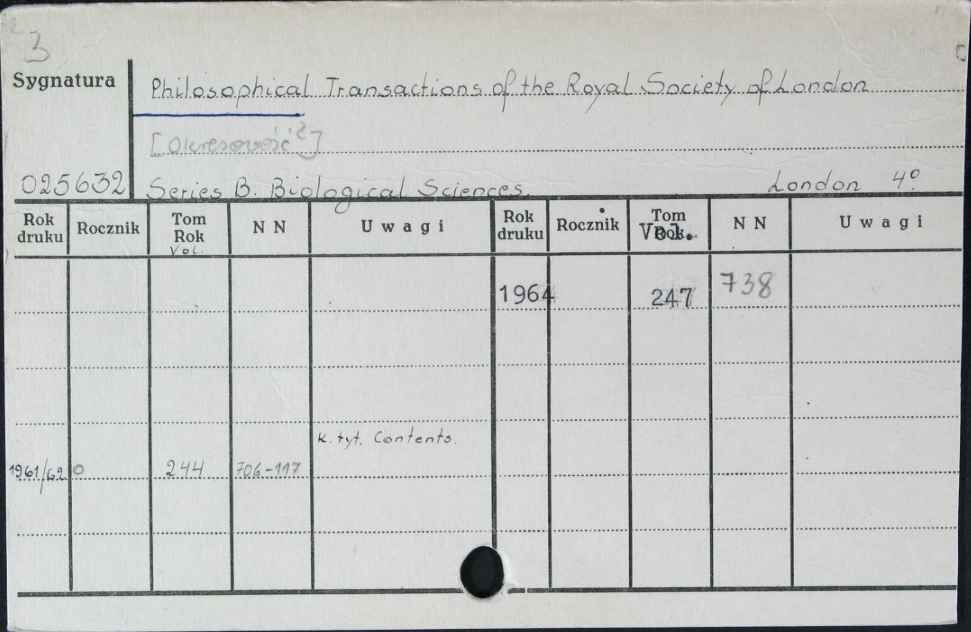 3
Sygnatura
Philosophical Transactions of the Royal Society of London
[Okresowość?]
025632 Series B. Biological Sciences. London 4º
Rok druku Rocznik Tom Rok Vol. N N Uwagi Rok druku Rocznik Tom Vol. N N Uwagi
1964 247 738
k. tyt. Contents.
1961/62 244 706-717